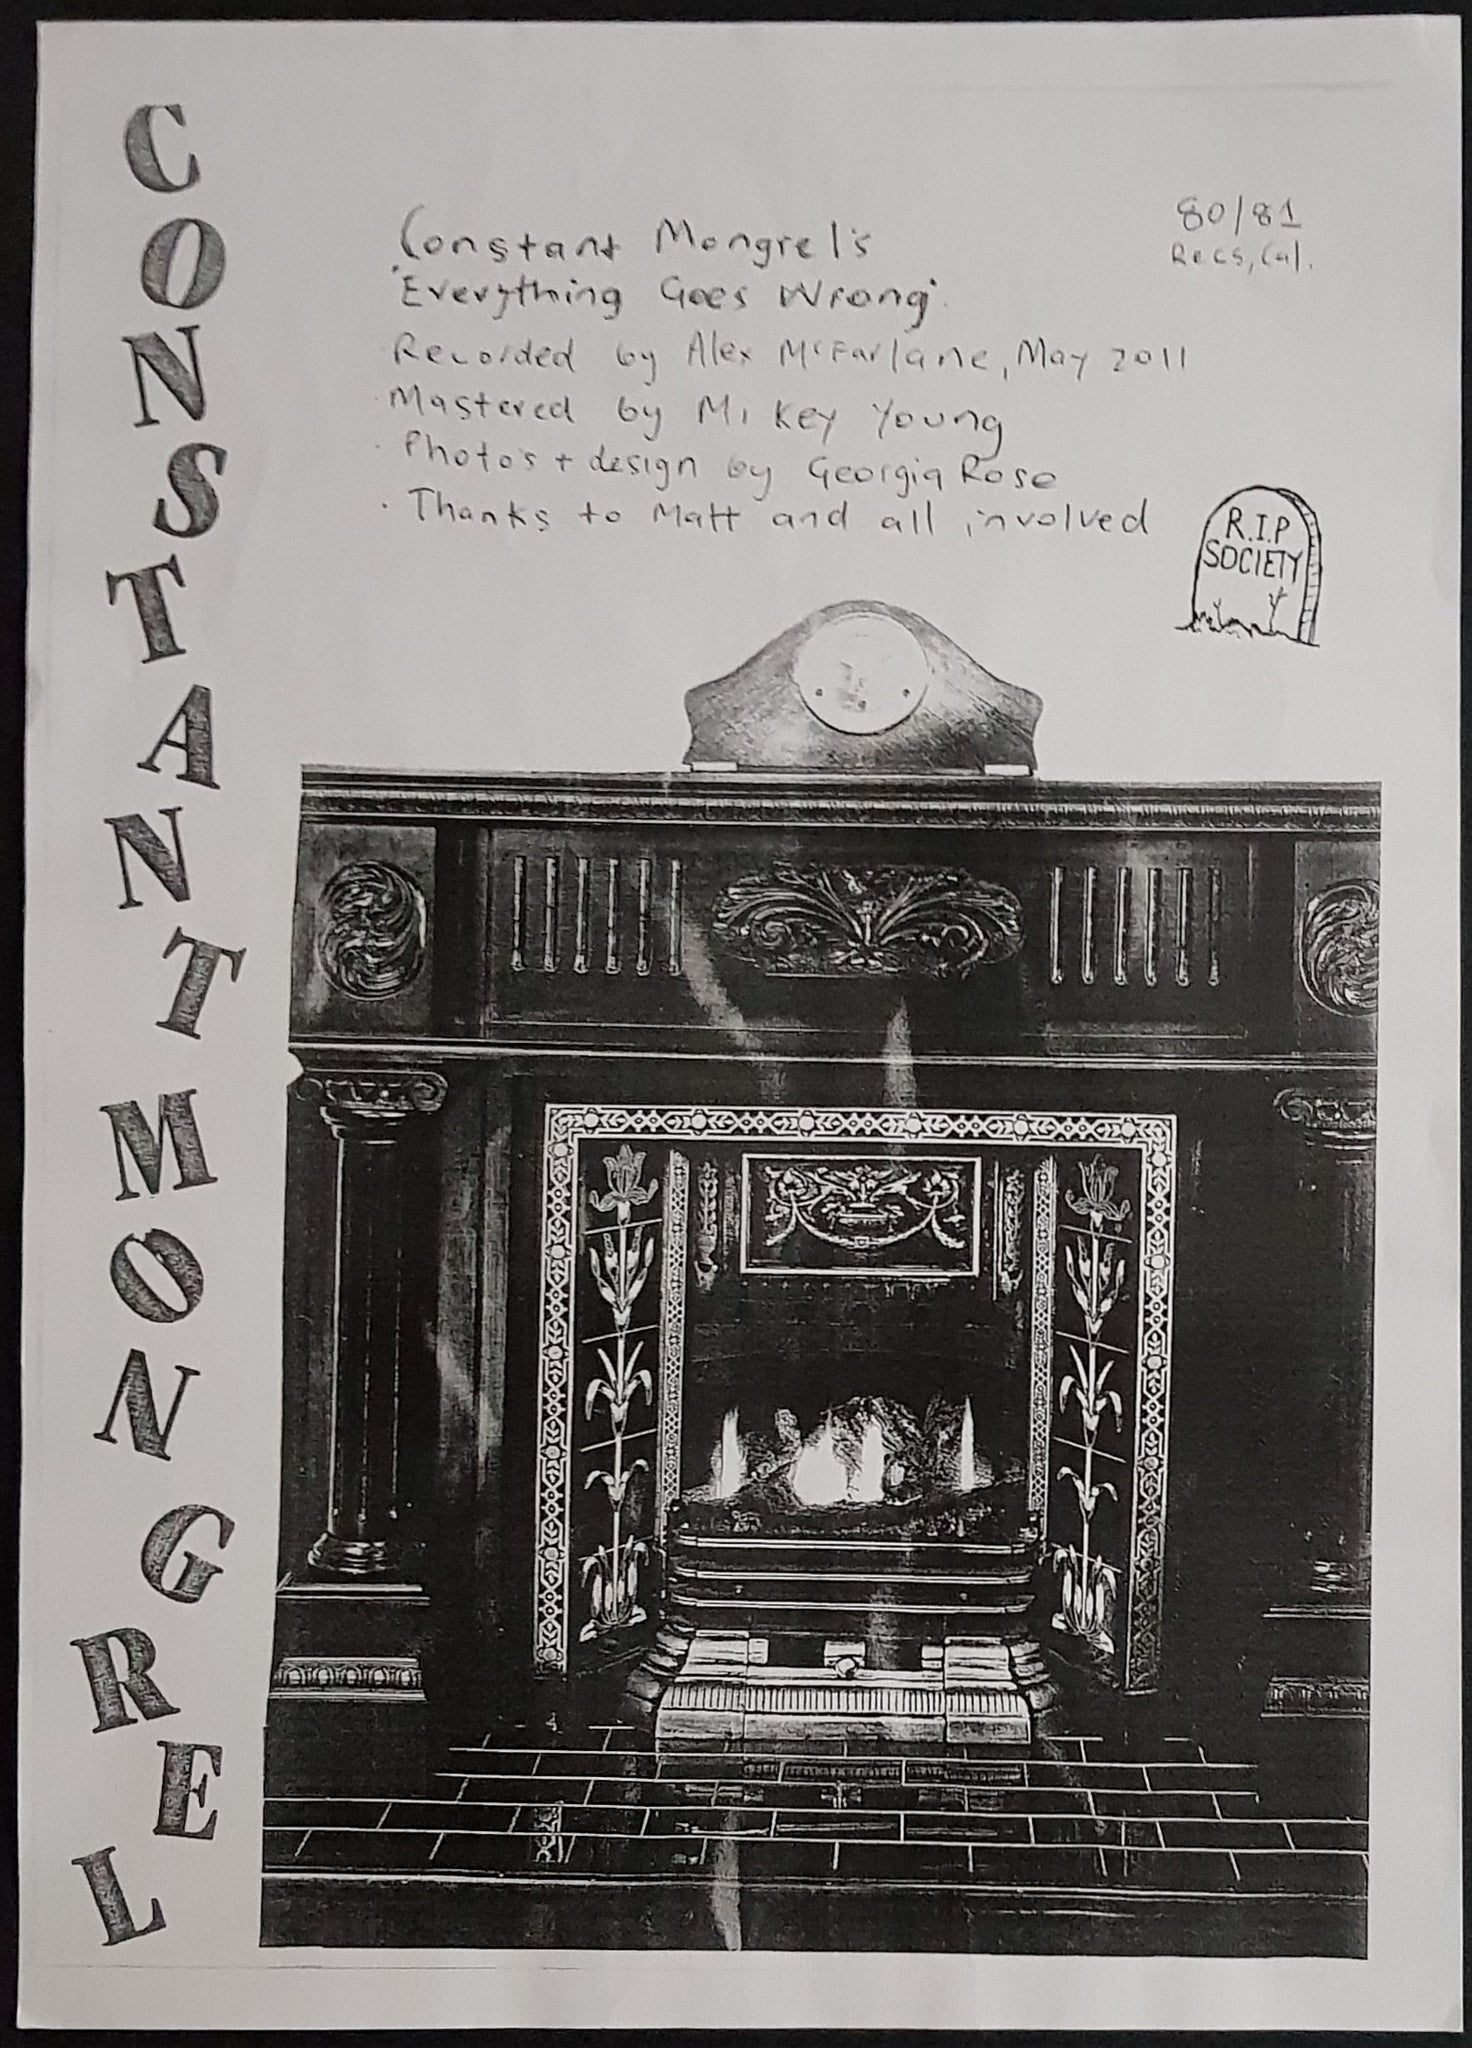 CONSTANT MONGREL
Constant Mongrel's
'Everything Goes Wrong'.
Recorded by Alex McFarlane, May 2011
· Mastered by Mikey Young
· Photo's + design by Georgia Rose
· Thanks to Matt and all involved
80/81
Recs, Cal.
R.I.P
SOCIETY